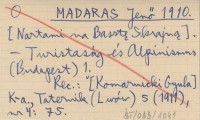 MADARAS Jenő 1910.
[Nortami na Bastę Skrajną].
– Turistaság és Alpinismus
(Budapest) 1.
Rec.: "[Komarnicki Gyula]
K-a, Taternik (Lwów) 5 (1911),
nr 4: 75.